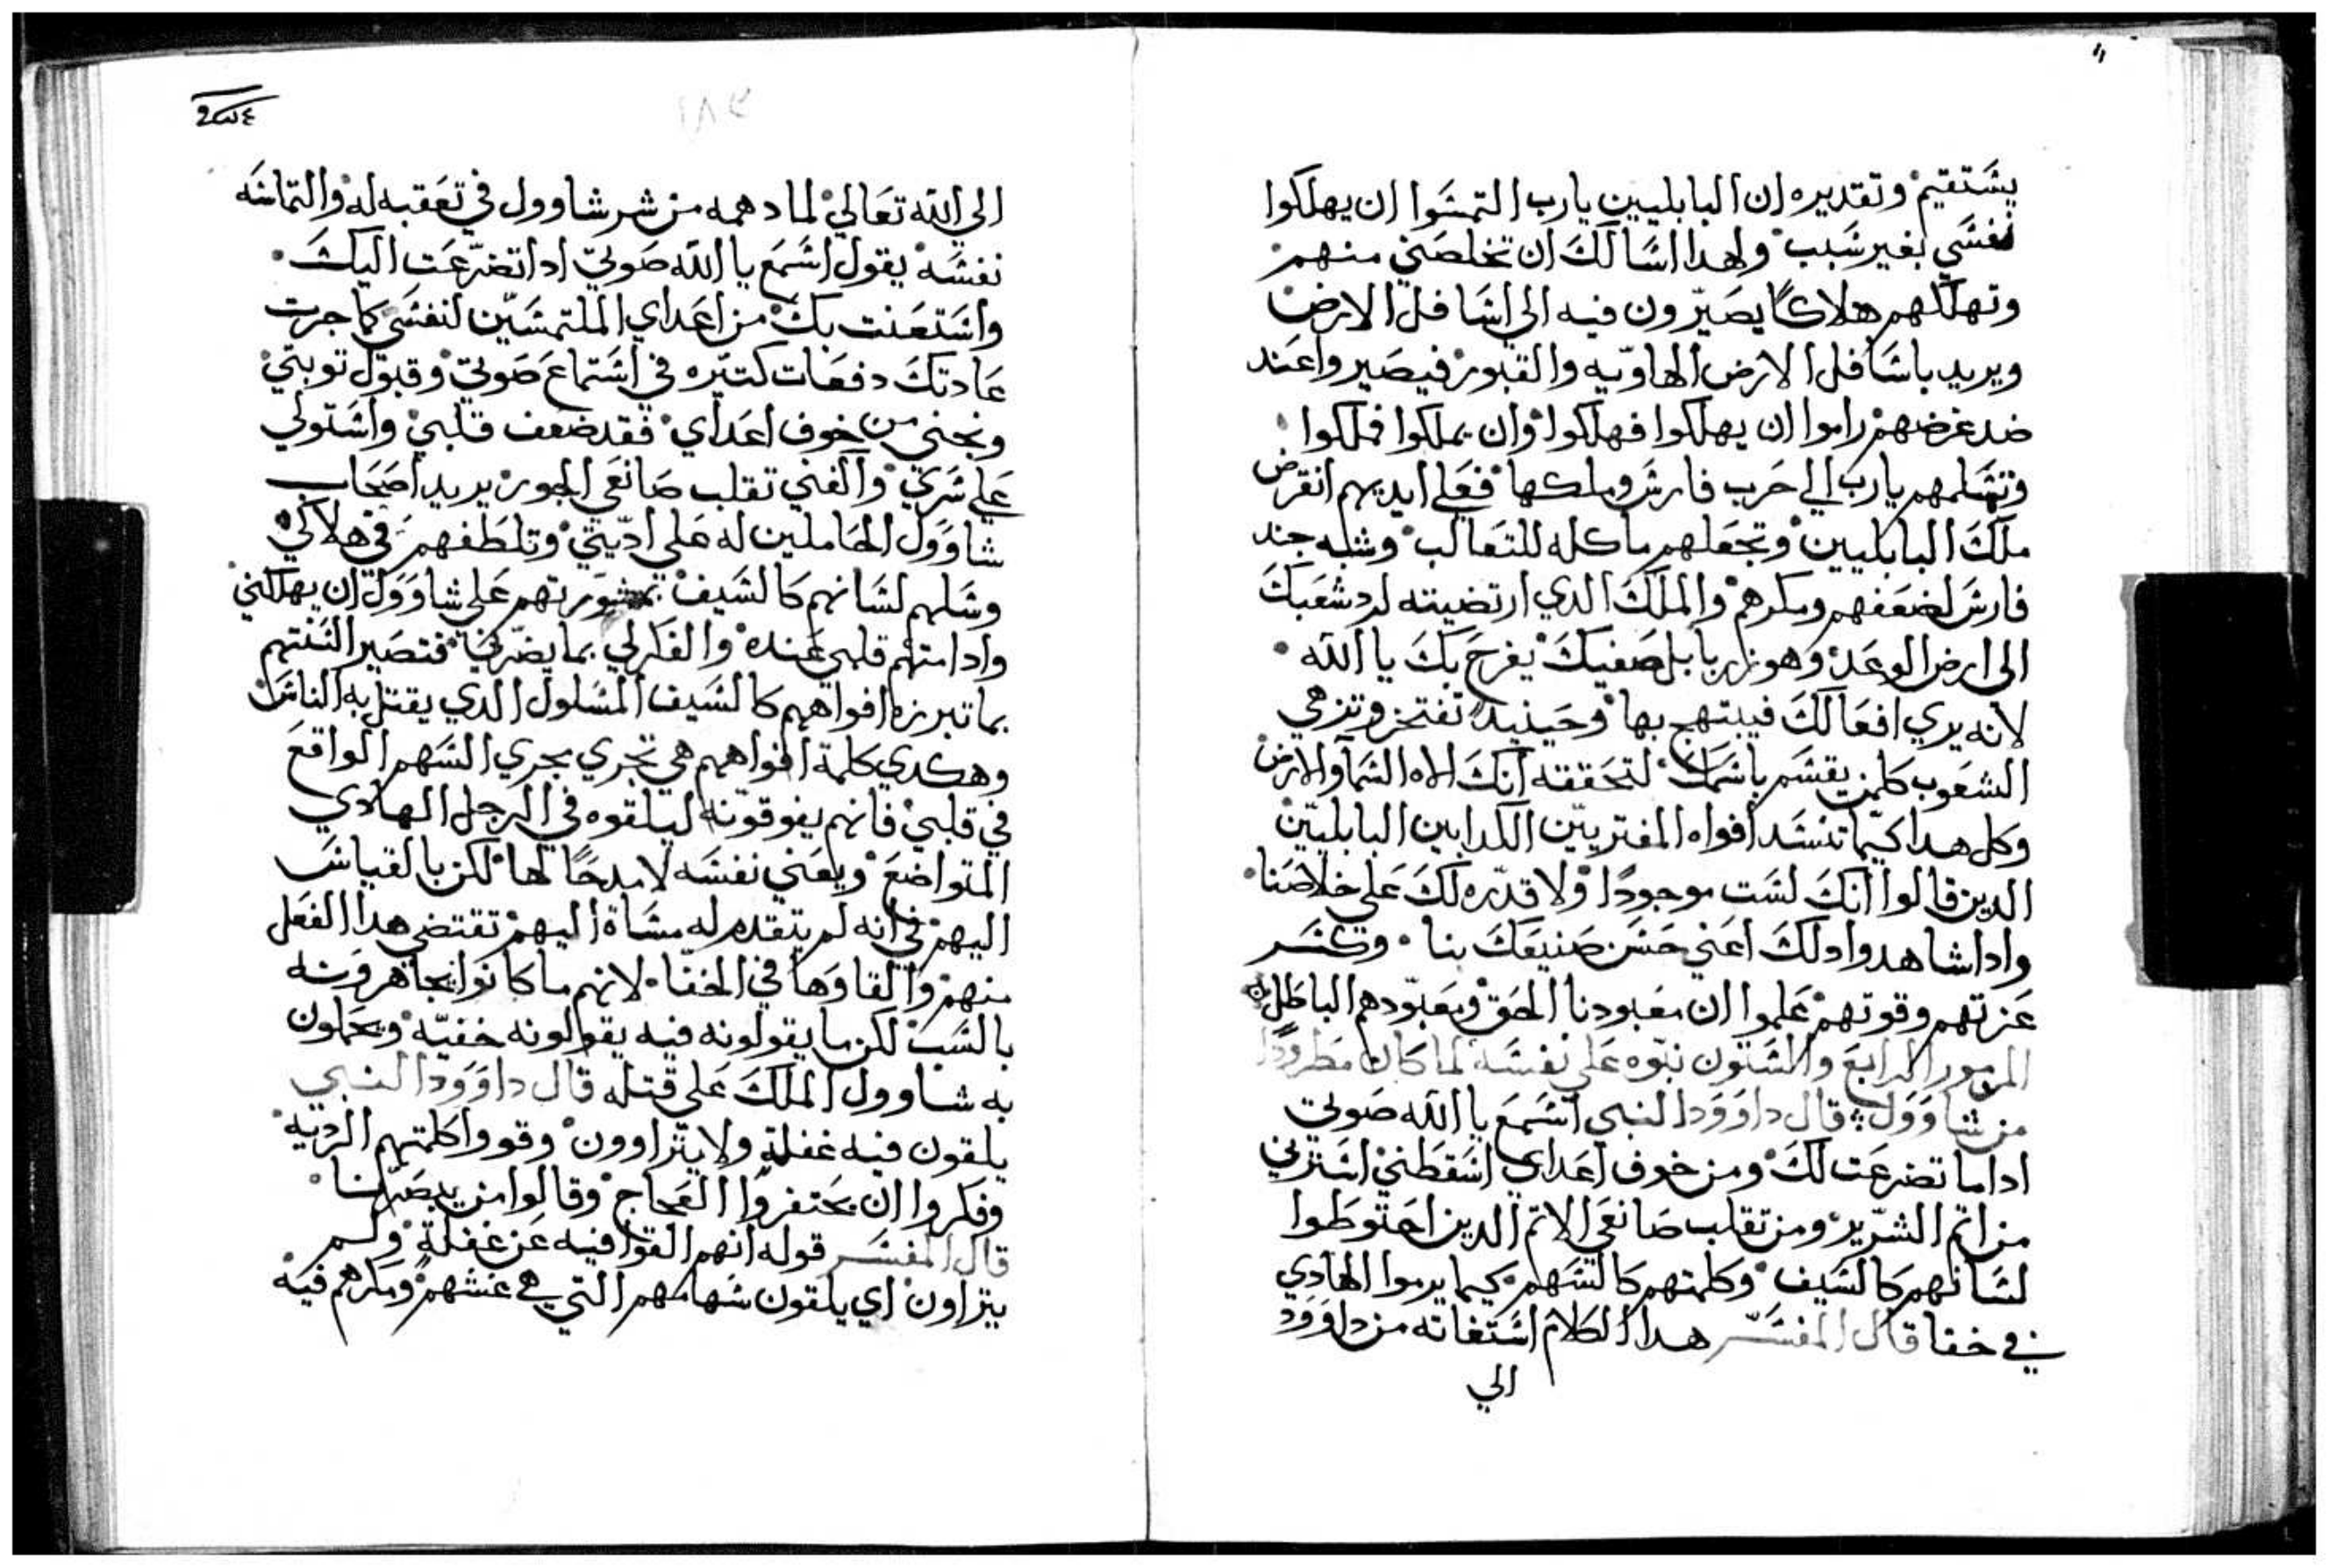 يشتقيم وتقديره ان البابليين يارب التمشوا ان يهلكوا
نفشي بغير شبب ولهدا اشالك ان تخلصني منهم
وتهلكهم هلاكًا يصيّرون فيه الي اشافل الارض
ويريد باشافل الارض الهاويّه والقبور فيصيروا عند
ضد غرضهم راموا ان يهلكوا فهلكوا وان يملكوا فملكوا
وتشلمهم يارب الي حرب فارش وملكها فعلي ايديهم انقرض
ملك البابليين وتجعلهم ماكله للتعالب وشبه جند
فارش لضعفهم ومكرهم والملك الدي ارتضيته لرد شعبك
الي ارض الوعد وهو زربابل صفيك يفرح بك يا الله
لانه يري افعالك فيبتهج بها وحينيد تفتخر وتزهي
الشعوب كلمن يقشم باشمك لتحققه انك الاه الشما والارض
وكل هدا كيما تنشد افواه المفتريين الكدابين البابليّن
الدين قالوا انك لشت موجودًا ولا قدّره لك علي خلاصنا
وادا شاهدوا دلك اعني حشن صنيعك بنا وكشر
عزتهم وقوتهم علموا ان معبودنا الحق ومعبّودهم الباطل
المزمور الرابع والشتون نبّوه علي نفشه لما كان مطرودًا
من شاوول قال داوود النبي اشمع يا الله صوتي
اداما تضرعت لك ومن خوف اعداي اشقطني اشترني
من اتم الشّرير ومن تقلب صانعي الاتم الدين احتوطوا
لشانهم كالشيف وكلمتهم كالشهم كيما يرموا الهادي
في خفا قال المفشّر هدا الكلام اشتغاته من داوود
الي
الي الله تعالي لما دهمه من شر شاوول في تعقبه له والتماشه
نفشه يقول اشمع يا الله صوتي ادا تضرّعت اليك
واشتعنت بك من اعداي الملتمشيّن لنفشي كما جرت
عادتك دفعات كتيره في اشتماع صوتي وقبول توبتي
ونجني من خوف اعداي فقد ضعف قلبي واشتولي
علي شري واكفني تقلب صانعي الجور يريد اصحاب
شاوول الحاملين له علي ادّيتي وتلطفهم في هلاكي
وشلهم لشانهم كالشيف بمشورتهم علي شاوول ان يهلكني
وادامتهم قلبي عنده والفكر لي بما يضرّني فتصير الشنتهم
بما تبرزه افواههم كالشيف المشلول الدي يقتل به الناش
وهكدي كلمة افواههم هي تجري مجري الشهم الواقع
في قلبي فانهم يفوقونه ليلقوه في الرجل الهادي
المتواضع ويعني نفشه لا مدحًا لها لكن بالقياش
اليهم في انه لم يتقدم له مشاة اليهم تقتضي هدا الفعل
منهم والقاوها في الخفا لانهم ما كانوا يجاهرونه
بالشب لكن ما يقولونه فيه يقولونه خفيّه ويحملون
به شاوول الملك علي قتله قال داوود النبي
يلقون فيه غفلةٍ ولا يتراوون وقووا كلمتهم الرديه
وفكروا ان يحتفروا الفخاخ وقالوا من يبصرنا
قال المفشر قوله انهم القوا فيه عن غفلةٍ ولم
يتراون اي يلقون شهامهم التي هي غشهم ومكرهم فيه